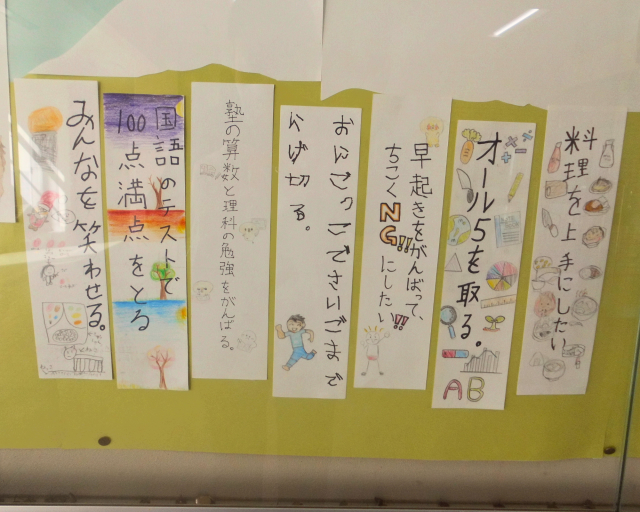 料理を上手にしたい
オール5を取る。
AB
早起きをがんばって、
ちこくNG!!にしたい!!
おにごっこでさいごまで
にげ切る。
塾の算数と理科の勉強をがんばる。
国語のテストで
100点満点をとる
みんなを笑わせる。